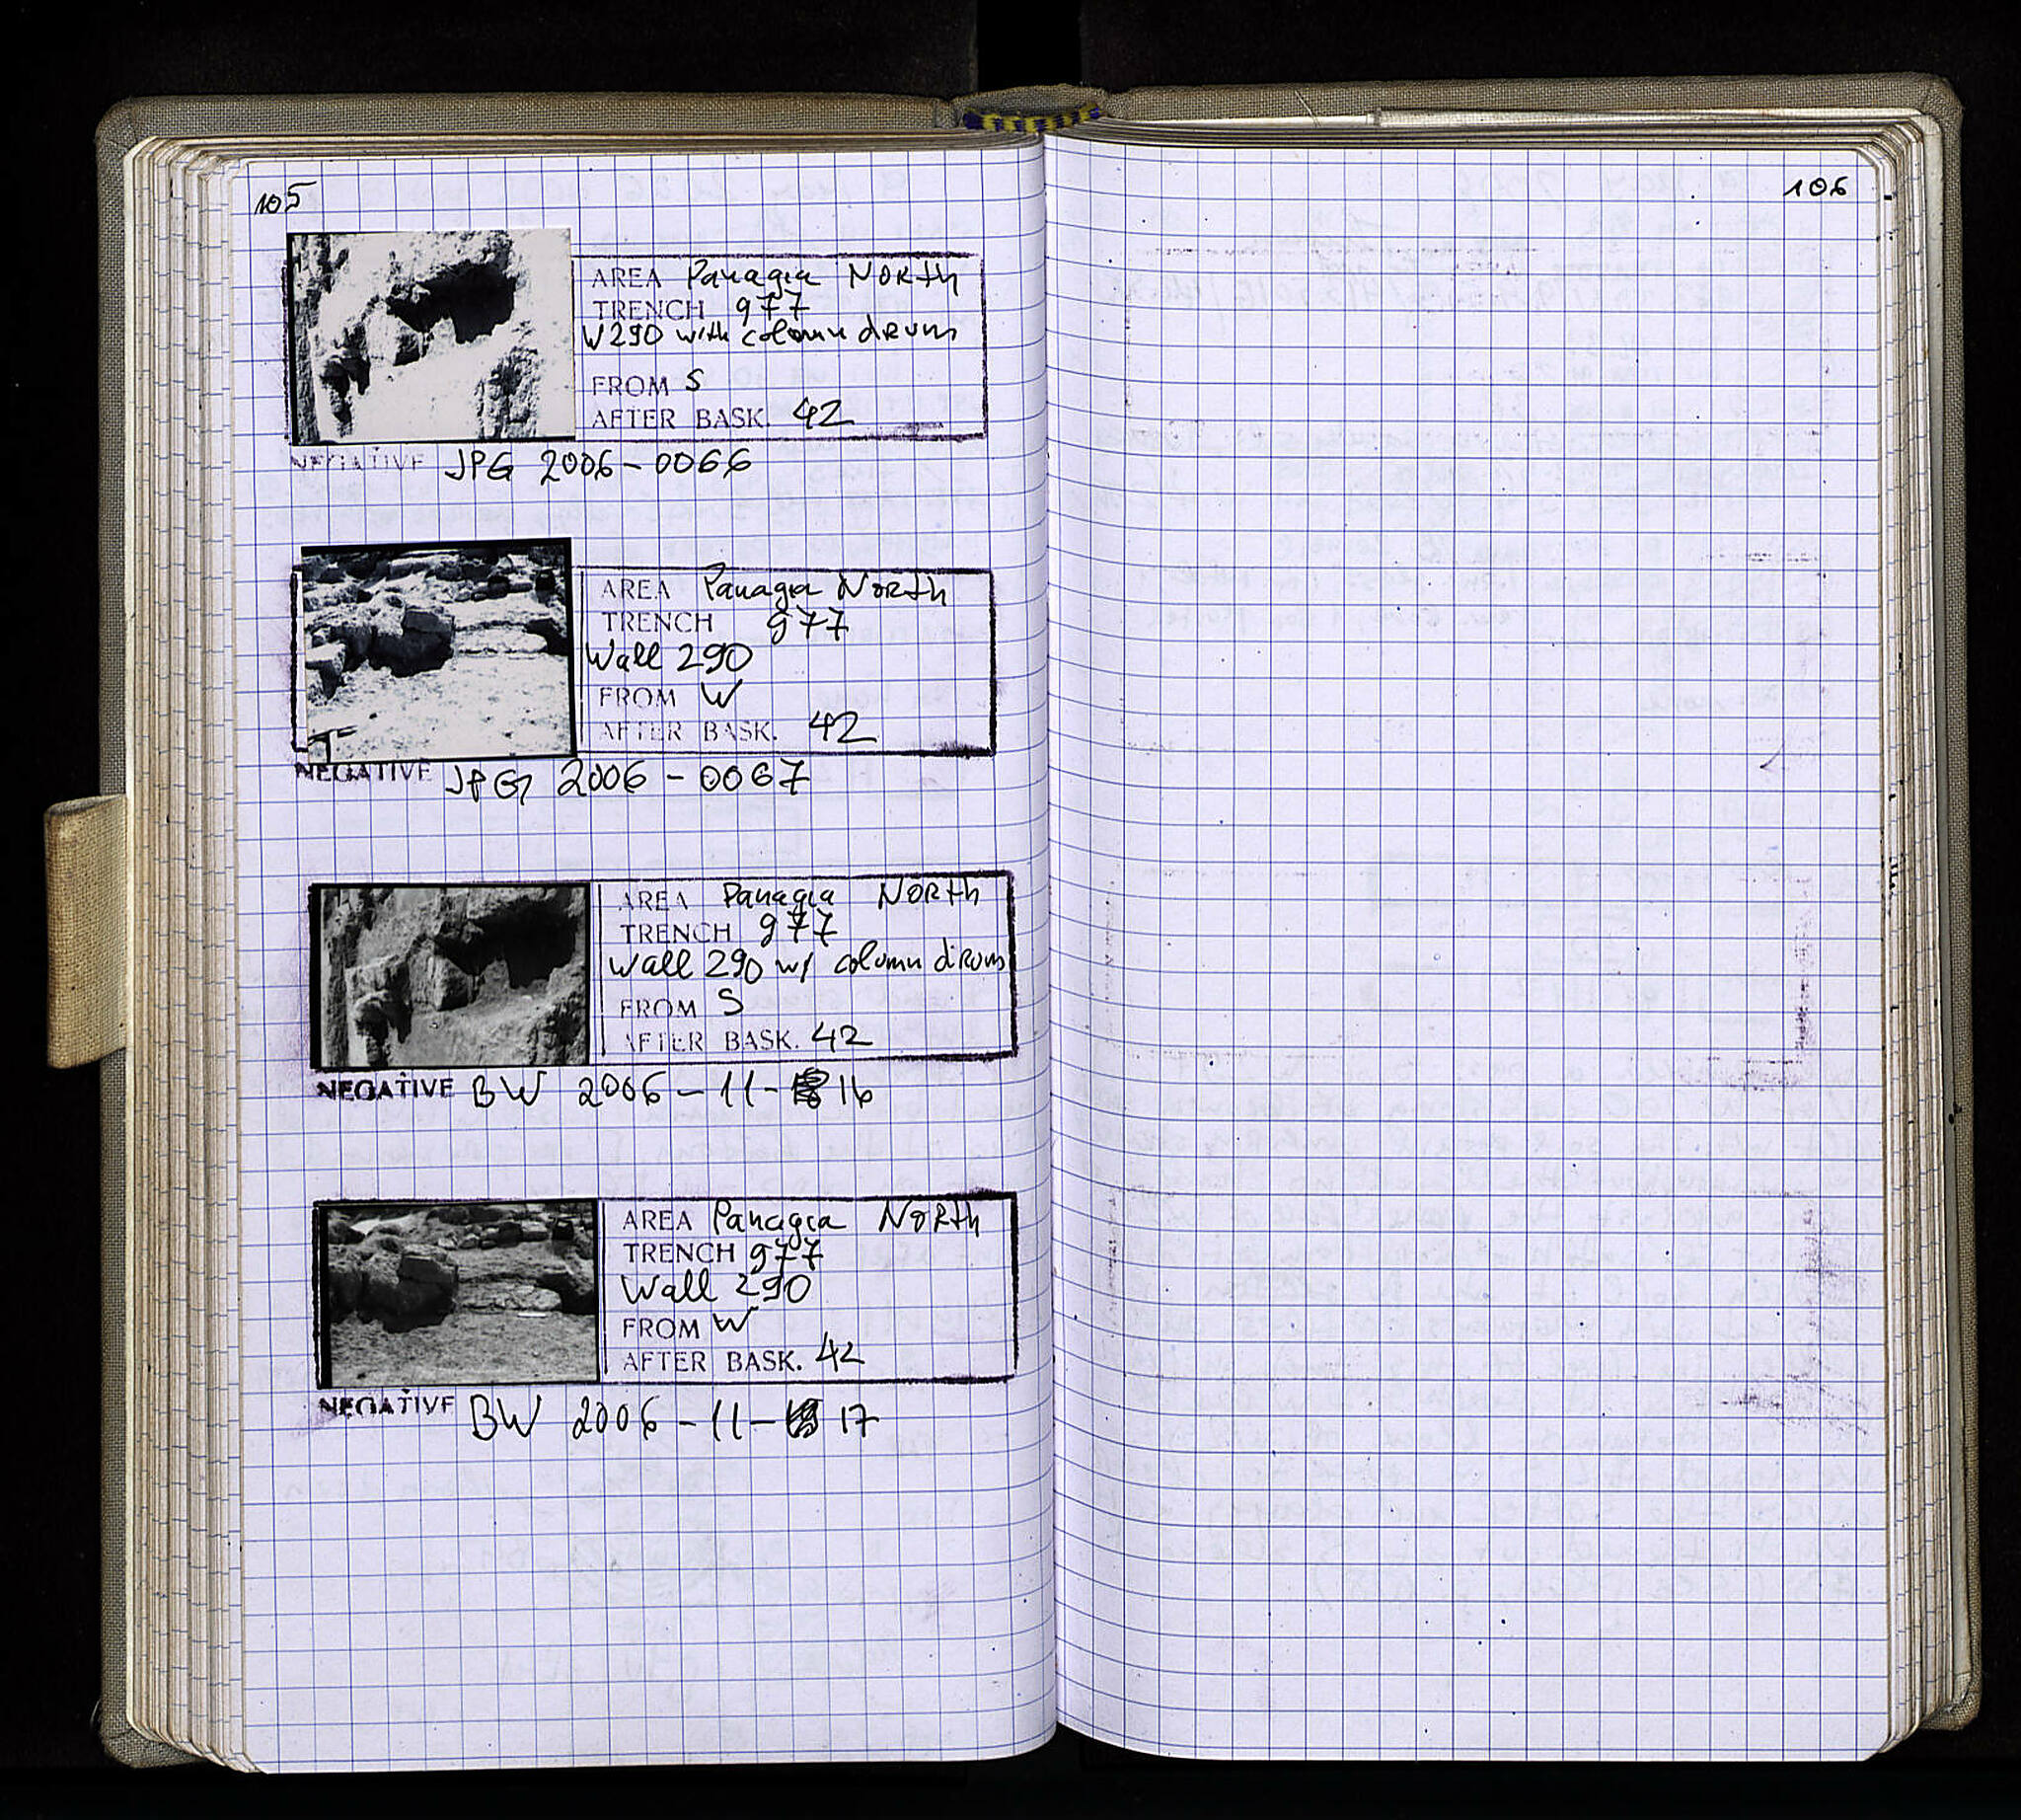 105
AREA Panagia North
TRENCH 977
W290 with column drum
FROM S
AFTER BASK. 42
NEGATIVE JPG 2006-0066
AREA Panagia North
TRENCH 977
Wall 290
FROM W
AFTER BASK. 42
NEGATIVE JPG 2006-0067
AREA Panagia North
TRENCH 977
Wall 290 w/ column drum
FROM S
AFTER BASK. 42
NEGATIVE BW 2006-11-16
AREA Panagia North
TRENCH 977
Wall 290
FROM W
AFTER BASK. 42
NEGATIVE BW 2006-11-17
106